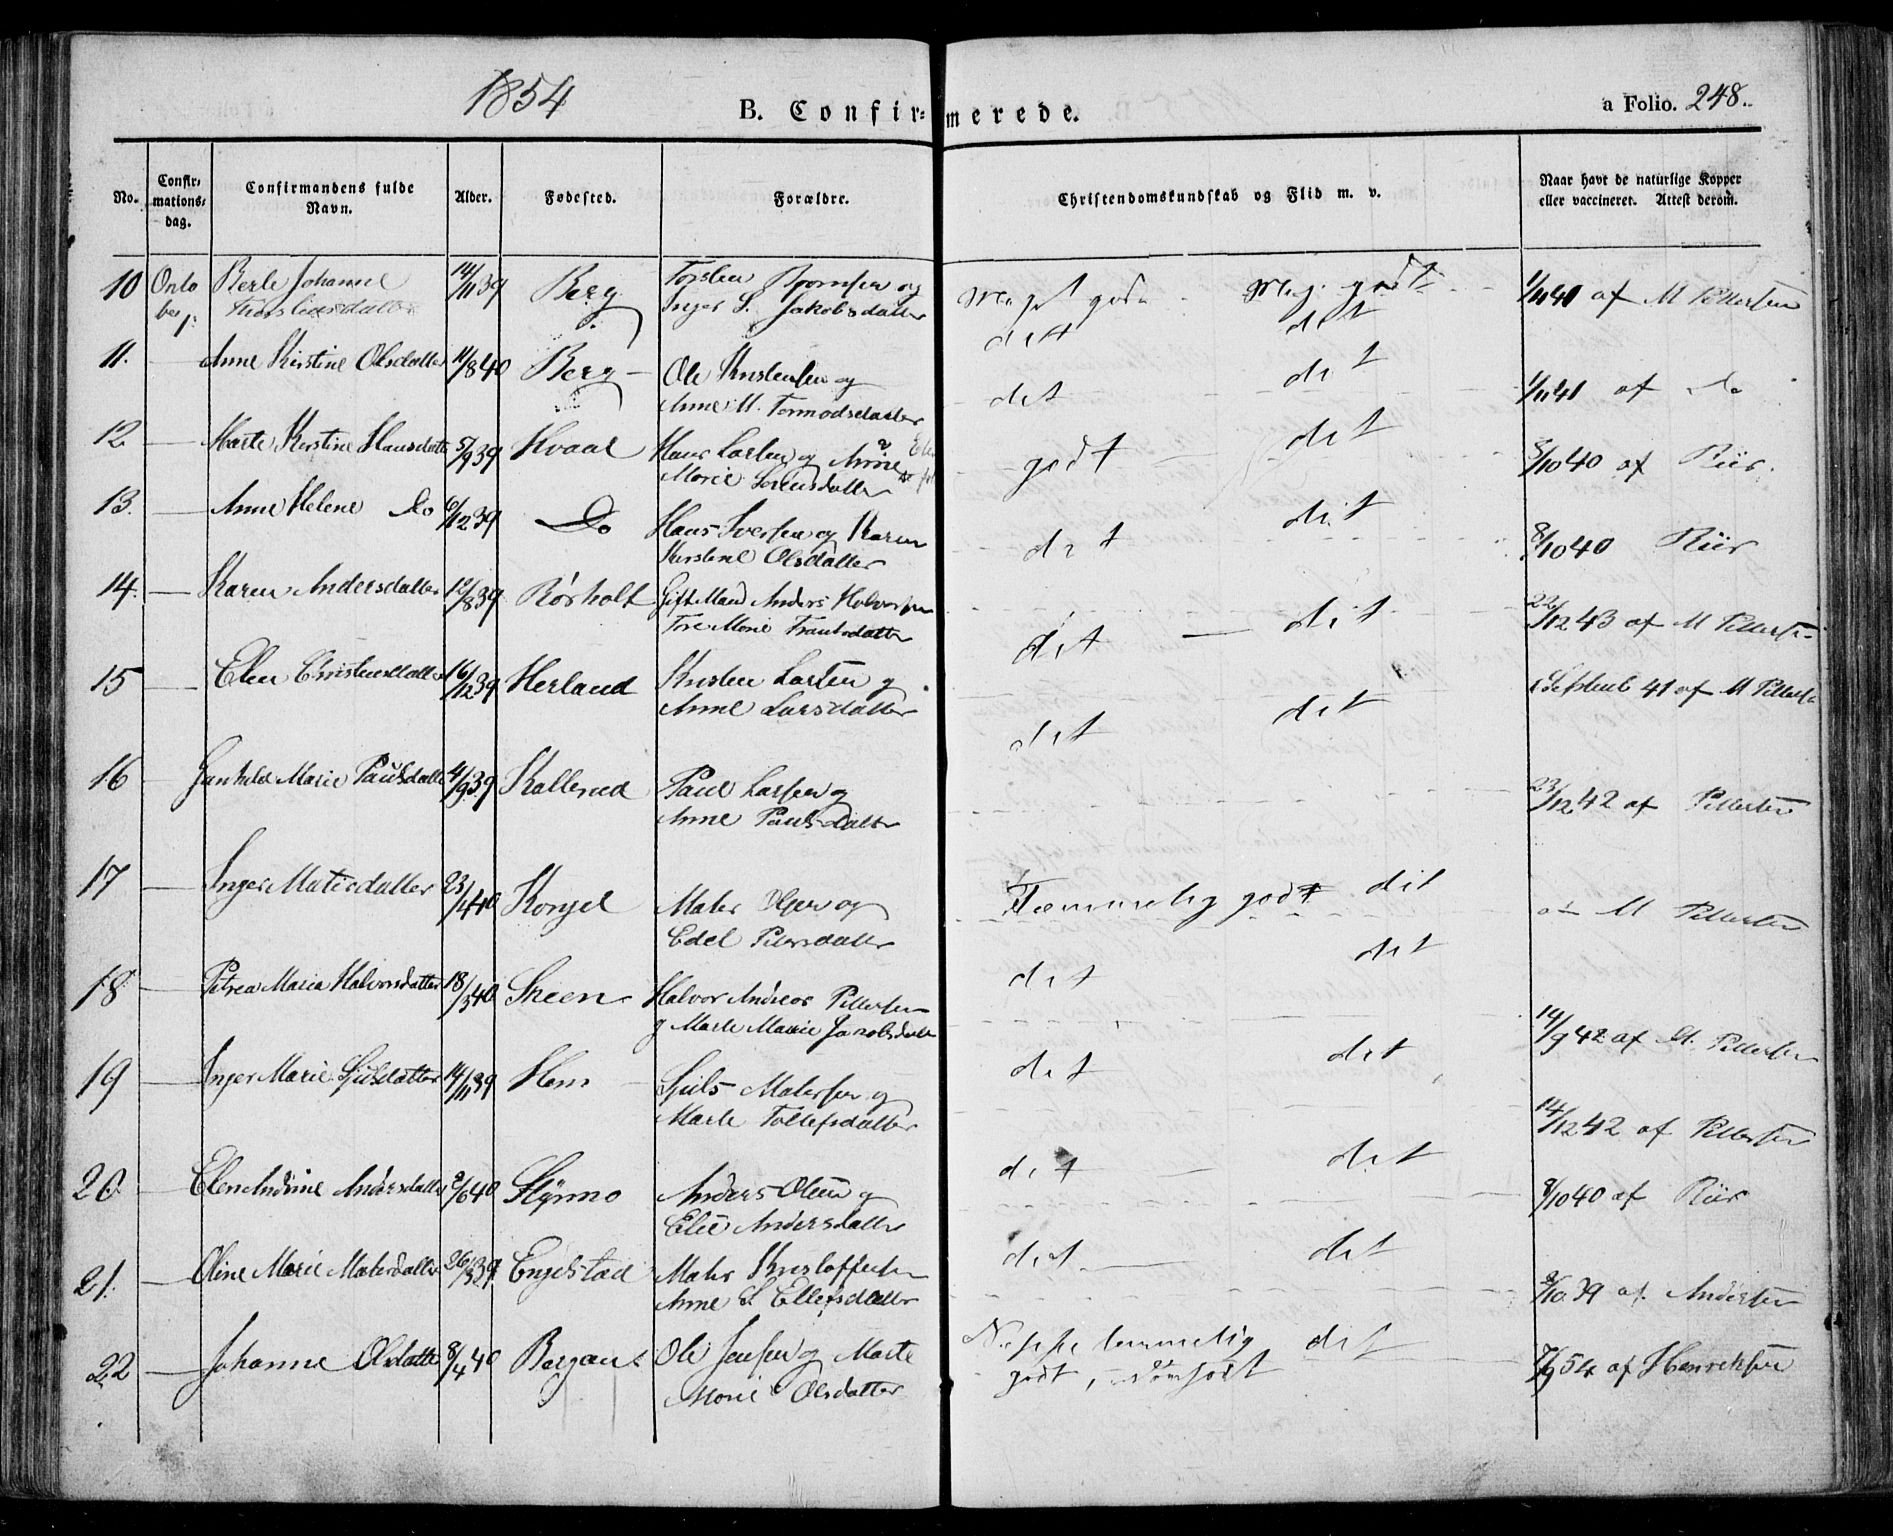 1854
B. Confir= merede.
a Folio. 248.
No.
Confir=
mations=
dag.
Confirmandens fulde
Navn.
Alder.
Fødested.
Forældre.
Christendomskundskab og Flid m. v.
Naar havt de naturlige Kopper
eller vaccineret. Attest derom.
10 Johanne 14/11 39 Berg Inger S. Jakobsdatter Meget godt Meg. godt 1/11 41 af M Pettersen
det det
11. Anne Kirstine Olsdatter 11/8 40 Berg Ole Kristensen og
Anne M. Tormodsdatter
det det 1/11 41 af Do
12 Marte Kirstine Hansdatter 5/9 39 Hvaal Hans Larsen og Anne
Marie Sørensdatter
godt det 8/10 40 af Riis
13. Anne Helene Do 6/12 39 Do Hans Iversen og Karen
Kirstine Olsdatter
det det 8/10 40 Riis
14. Karen Andersdatter 12/8 39 Rørholt Gift Mand Anders Halvorsen
Tore Marie
det det 22/12 43 af M Pettersen
15 Elen Christensdatter 16/12 39 Herland Kristen Larsen og
Anne Larsdatter
det det Septemb 41 af M Pettersen
16 Gunhild Marie Paulsdatter 4/9 39 Kallerud Paul Larsen og
Anne Paulsdatter
23/12 42 af Pettersen
17 Inger Matisdatter 23/1 40 Matis Olsen og
Edel Pettersdatter
Temmelig godt det M Pettersen
18 Petrea Maria Halvorsdatter 18/3 40 Skeen Halvor Andreas Pettersen
og Marte Marie Jacobsdatter
det det 14/9 42 af M. Pettersen
19 Inger Marie 14/11 39 Hem
Marte Tollefsdatter
det det 14/12 42 af Pettersen
20 Elen Andrine Andersdatter 2/6 40 Anders Olsen og
Andersdatter
det det 8/10 40 af Riis
21. Oline Marie Matisdatter 26/3 39 Engelstad Matis Kristoffersen
Anne S. Ellefsdatter
det det 8/10 39 af Andersen
22 Johanne Olsdatter 8/4 40 Bergan Ole Jensen og Marte
Marie Olsdatter
Neppe temmelig det
godt,
7/9 54 af Henriksen